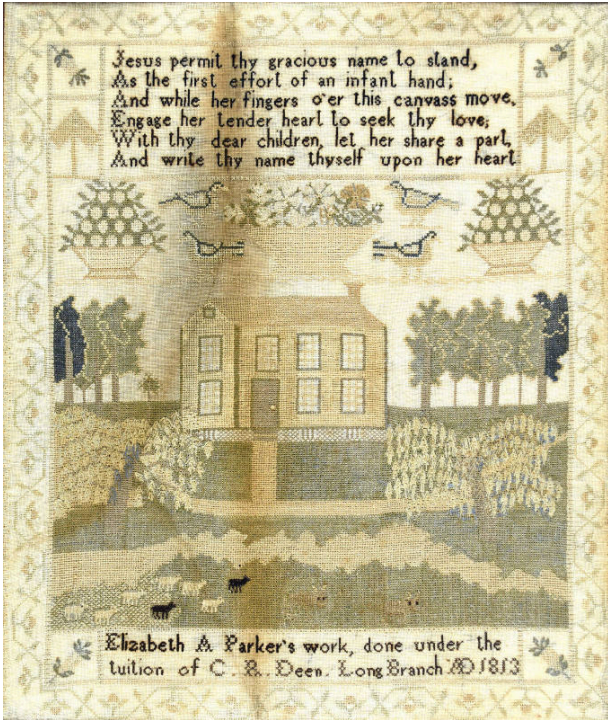 Jesus permit thy gracious name to stand,
As the first effort of an infant hand;
And while her fingers o'er this canvass move,
Engage her tender heart to seek thy love;
With thy dear children, let her share a part,
And write thy name thyself upon her heart
Elizabeth A Parker's work, done under the
tuition of C. R. Deen. Long Branch AD 1813